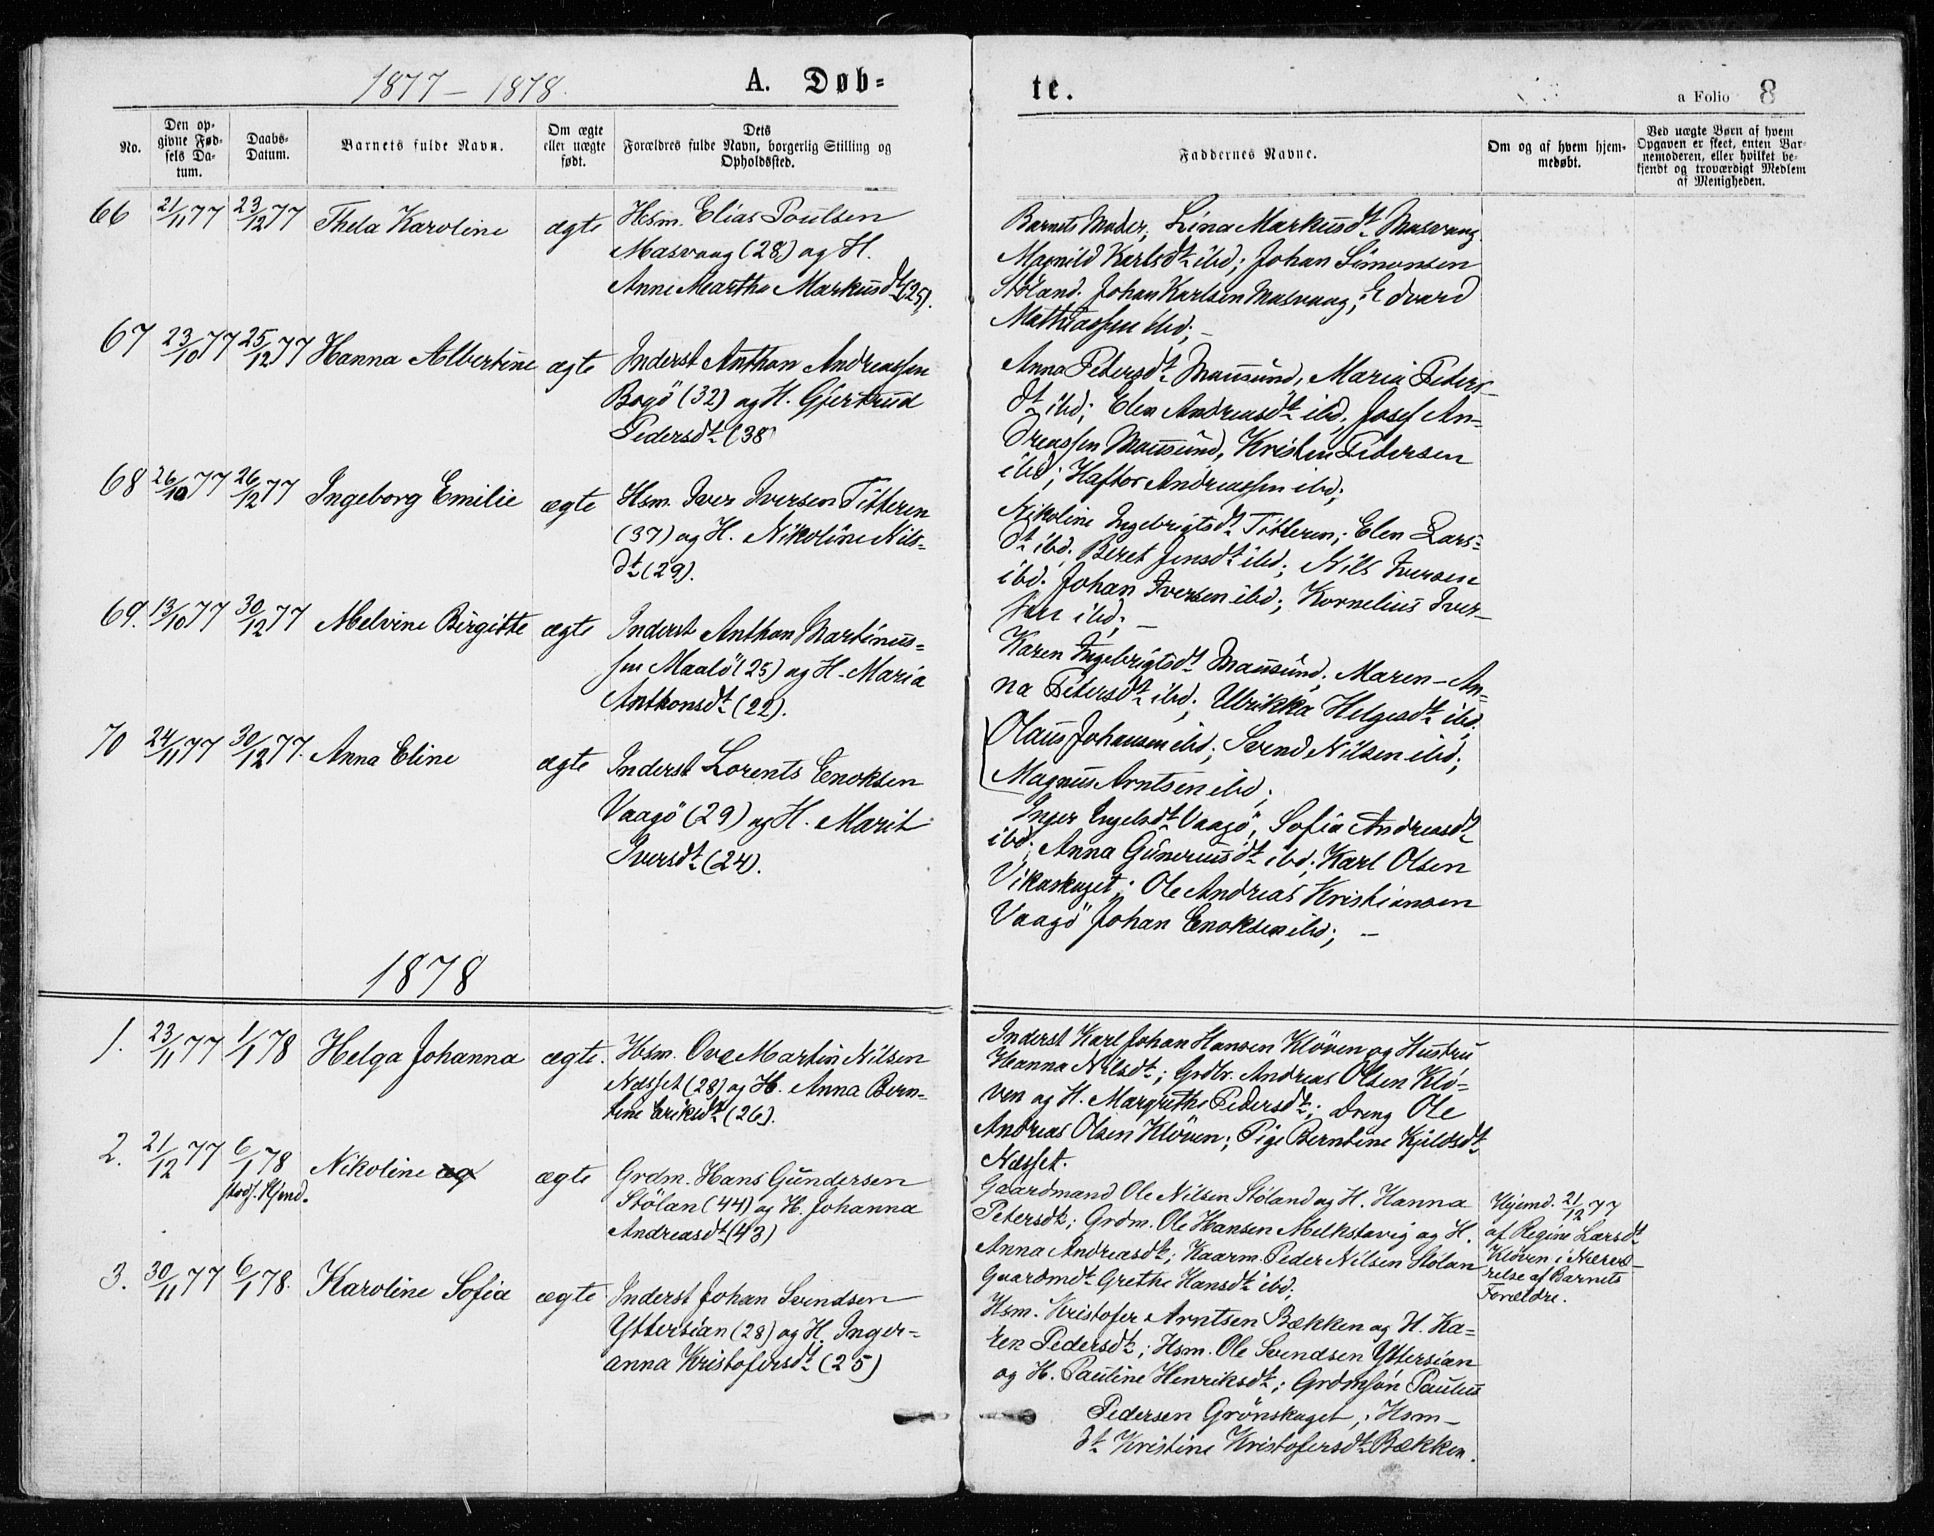 1877 – 1878.
A. Døb=
te.
a Folio 8
No.
Den op-
givne Fød-
sels Da-
tum.
Daabs-
Datum.
Barnets fulde Navn.
Om ægte
eller uægte
født.
Dets
Forældres fulde Navn, borgerlig Stilling og
Opholdssted.
Faddernes Navne.
Om og af hvem hjem-
medøbt.
Ved uægte Børn af hvem
Opgaven er skeet, enten Bar-
nemoderen, eller hvilket be-
kjendt og troværdigt Medlem
af Menigheden.
66 21/11 77 23/12 77 Thela Karoline ægte Hsm. Elias Poulsen
Masvaag (28) og H.
Anne Martha Markusdt (25).
Barnets Moder, Lina Markusdt Masvaag
Magnild Karlsdt ibd; Johan Simonsen
Støland. Johan Karlsen Masvaag; Edvard
Mathiassen ibd; –
67 23/10 77 25/12 77 Hanna Albertine ægte Inderst Anthon Andreassen
Bogö (32) og H. Gjertrud
Pedersdt (38
Anna Petersdt Mausund, Maria Peters-
dt ibd; Elen Andreasdt ibd, Josef An=
dreassen Mausund, Kristen Pedersen
ibd; Haftor Andreassen ibd;
68 26/10 77 26/12 77 Ingeborg Emilie ægte Hsm. Iver Iversen Titteren
(37) og H. Nikoline Nils-
dt (29).
Nikoline Ingebrigtsdt Titteren; Elen Lars=
dt ibd; Beret Jensdt ibd; Nils Iversen
ibd. Johan Iversen ibd; Kornelius Iver-
sen ibd; –
69. 13/10 77 30/12 77 Melvine Birgitte ægte Inderst Anthon Martinus=
sen Maalö (25) og H. Maria
Anthonsdt (22).
Karen Ingebrigtsdt Mausund; Maren-An=
na Petersdt ibd; Ulrikka Helgesdt ibd.
Olaus Johansen ibd; Svend Nilsen ibd;
Magnus Arntsen ibd;
70 24/11 77 30/12 77. Anna Eline ægte Inderst Lorents Enoksen
Vaagö (29) og H. Marit
Iversdt (24).
Inger Ingelsdt Vaagö, Sofia Andreasdt
ibd; Anna Gunerusdt ibd; Karl Olsen
Vikaskaget; Ole Andreas Kristiansen
Vaagö Johan Enoksen ibd; –
1878
1. 23/11 77 1/1 78 Helga Johanna ægte. Hsm. Ove Martin Nilsen
Næsset (28) og H. Anna Bern-
tine Eriksdt (26).
Inderst Karl Johan Hansen Kløven og Hustru
Hanna Nilsdt; Grdbr. Andreas Olsen Klö-
ven og H. Margrethe Pedersdt; Dreng Ole
Andreas Olsen Kløven; Pige Berntine Kjeldsdt
Næsset.
2. 21/12 77 6/1 78 Nikoline og ægte Grdm. Hans Gundersen
Stölan (44) og H. Johanna
Andreasdt (43)
stadf. Hjmd.
Gaardmand Ole Nilsen Støland og H. Hanna
Petersdt; Grdm. Ole Hansen Melkstavig og H.
Anna Andreasdt; Kaarm. Peder Nilsen Stölan
Gaardmdt Grethe Hansdt ibd;
Hjemd. 21/12 77
af Regine Larsdt
Kløven i Nærvæ-
relse af Barnets
Forældre.
3. 30/11 77 6/1 78. Karoline Sofia ægte Inderst Johan Svendsen
Yttersian (28) og H. Inger-
anna Kristofersdt (25)
Hsm. Kristofer Arntsen Bækken og H. Ka=
ren Pedersdt; Hsm. Ole Svendsen Yttersian
og H. Pauline Henriksdt; Grdmsön Paulus
Pedersen Grönskaget; Hsm-
dt Kristine Kristofersdt Bækken.